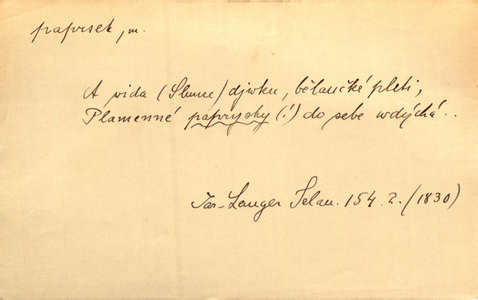 paprsek, m.
A vida (Slunce) djwku, bělaučké pleti,
Plamenné paprsky (!) do sebe wdýchá..
Jar. Langer Selan. 154. 2. (1830)